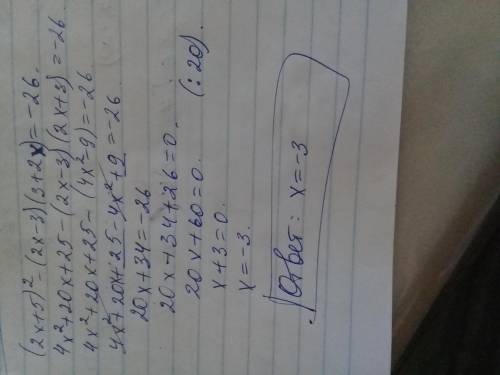 (2x+5)² - (2x-3)(3+2x) = -26.
4x²+20x+25-(2x-3)(2x+3) = -26
4x²+20x+25-(4x²-9) = -26
4x²+20x+25-4x²+9 = -26.
20x+34 = -26
20x+34+26 = 0.
20x+60 = 0. (:20).
x+3 = 0.
x = -3.
Ответ: x = -3